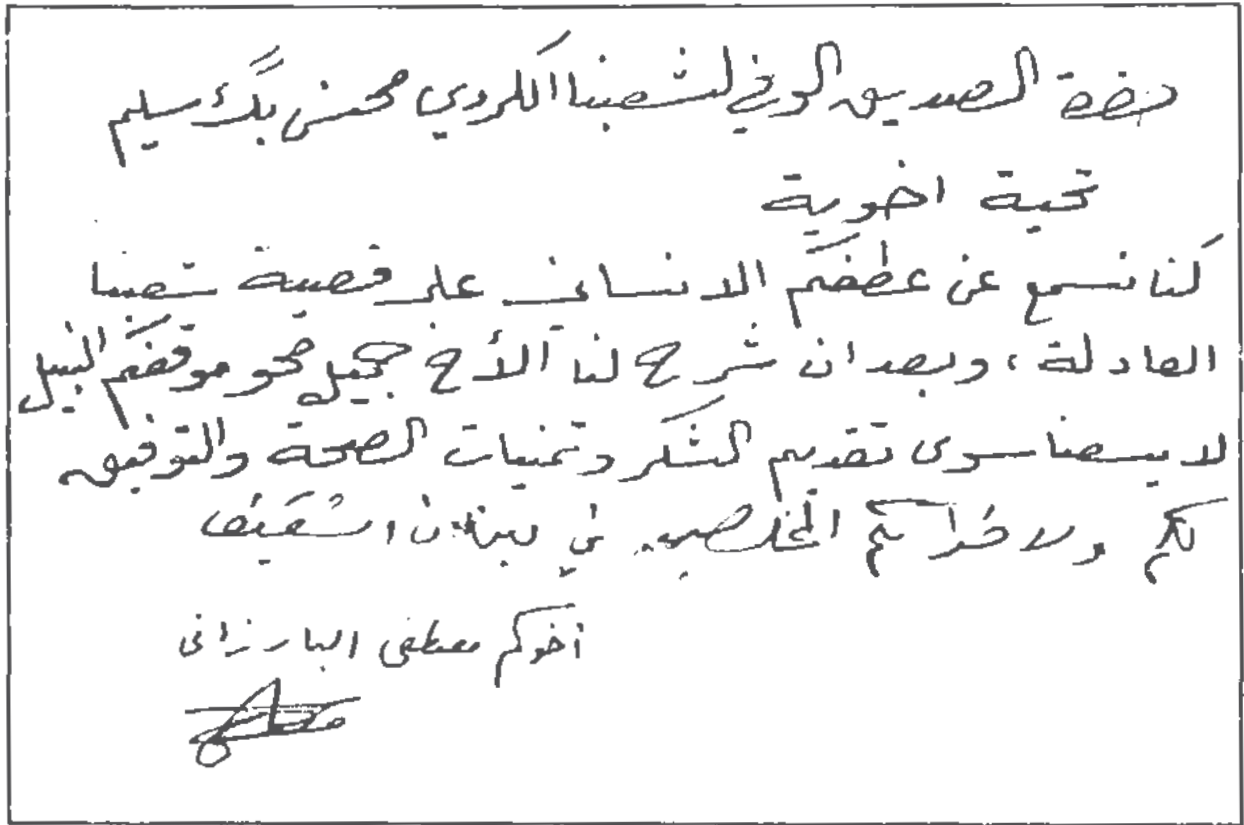 حضرة الصديق الوفي لشعبنا الكردي محسن بگ سليم
تحية اخوية
كنا نسمع عن عطفكم الانساني على قضية شعبنا
العادلة ، وبعد ان شرح لنا الأخ جميل محو موقفكم النبيل
لا يسعنا سوى تقديم الشكر وتمنيات الصحة والتوفيق
لكم ولاخوانكم المخلصين في لبنان الشقيق
أخوكم مصطفى البارزانى
مصطفى